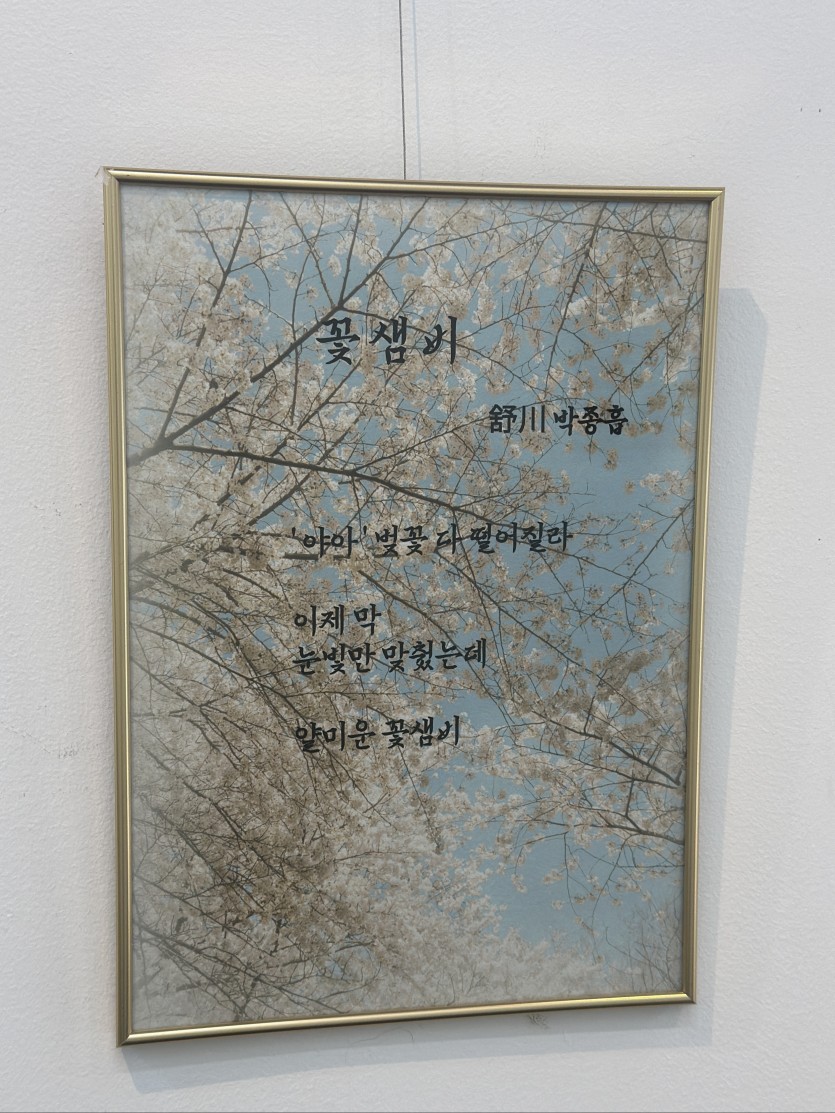 꽃샘비
舒川 박종흡
'아아' 벚꽃 다 떨어질라
이제 막
눈빛만 맞췄는데
얄미운 꽃샘비